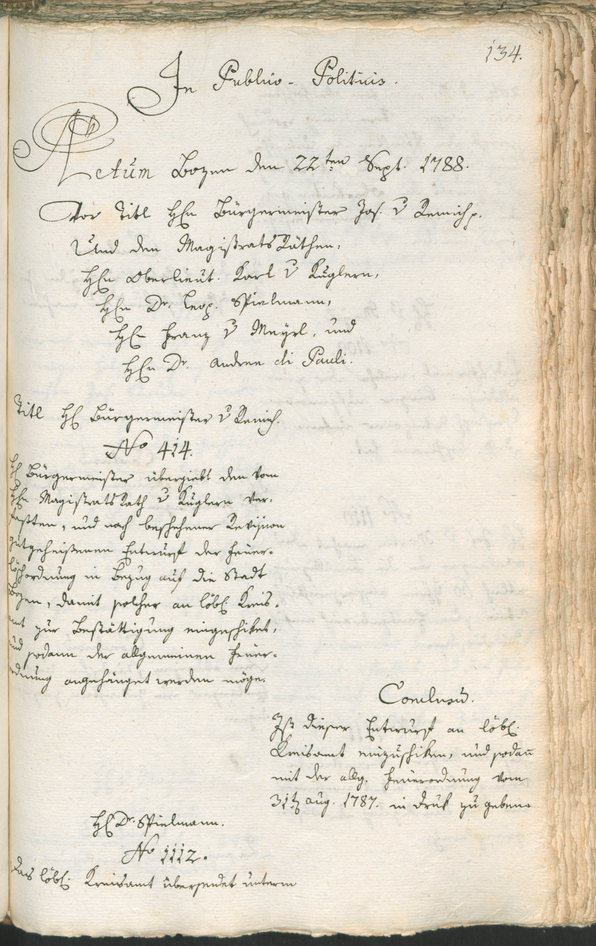 134.
In Publico-Politicis.
Actum Bozen den 22ten Sept. 1788.
Vor Titl HHn Bürgermeister Jos. v Remich p.
Und den Magistrats Räthen,
HHn Oberlieut. Karl v Kuglern,
HHn Dr. Leop. Spielmann,
HHn Franz v Mayrl, und
HHn Dr. Andree di Pauli.
Titl HH Bürgermeister v Remich.
No 414.
HH Bürgermeister übergiebt den vom
HHn Magistrats Rath v Kuglern ver-
faßten, und nach beschehener Revision
gutgeheißenen Entwurf der Feuer-
löschordnung in Bezug auf die Stadt
Bozen, damit solcher an löbl. Kreis-
amt zur Bestättigung eingeschiket,
und sodann der allgemeinen Feuer-
ordnung angehänget werden möge.
Conclusum.
Ist dieser Entwurf an löbl.
Kreisamt einzuschiken, und sodann
mit der allg. Feuerordnung vom
31ten aug. 1787. in druk zu geben.
HH Dr. Spielmann.
No 1112.
Das löbl. Kreisamt übersendet unterm